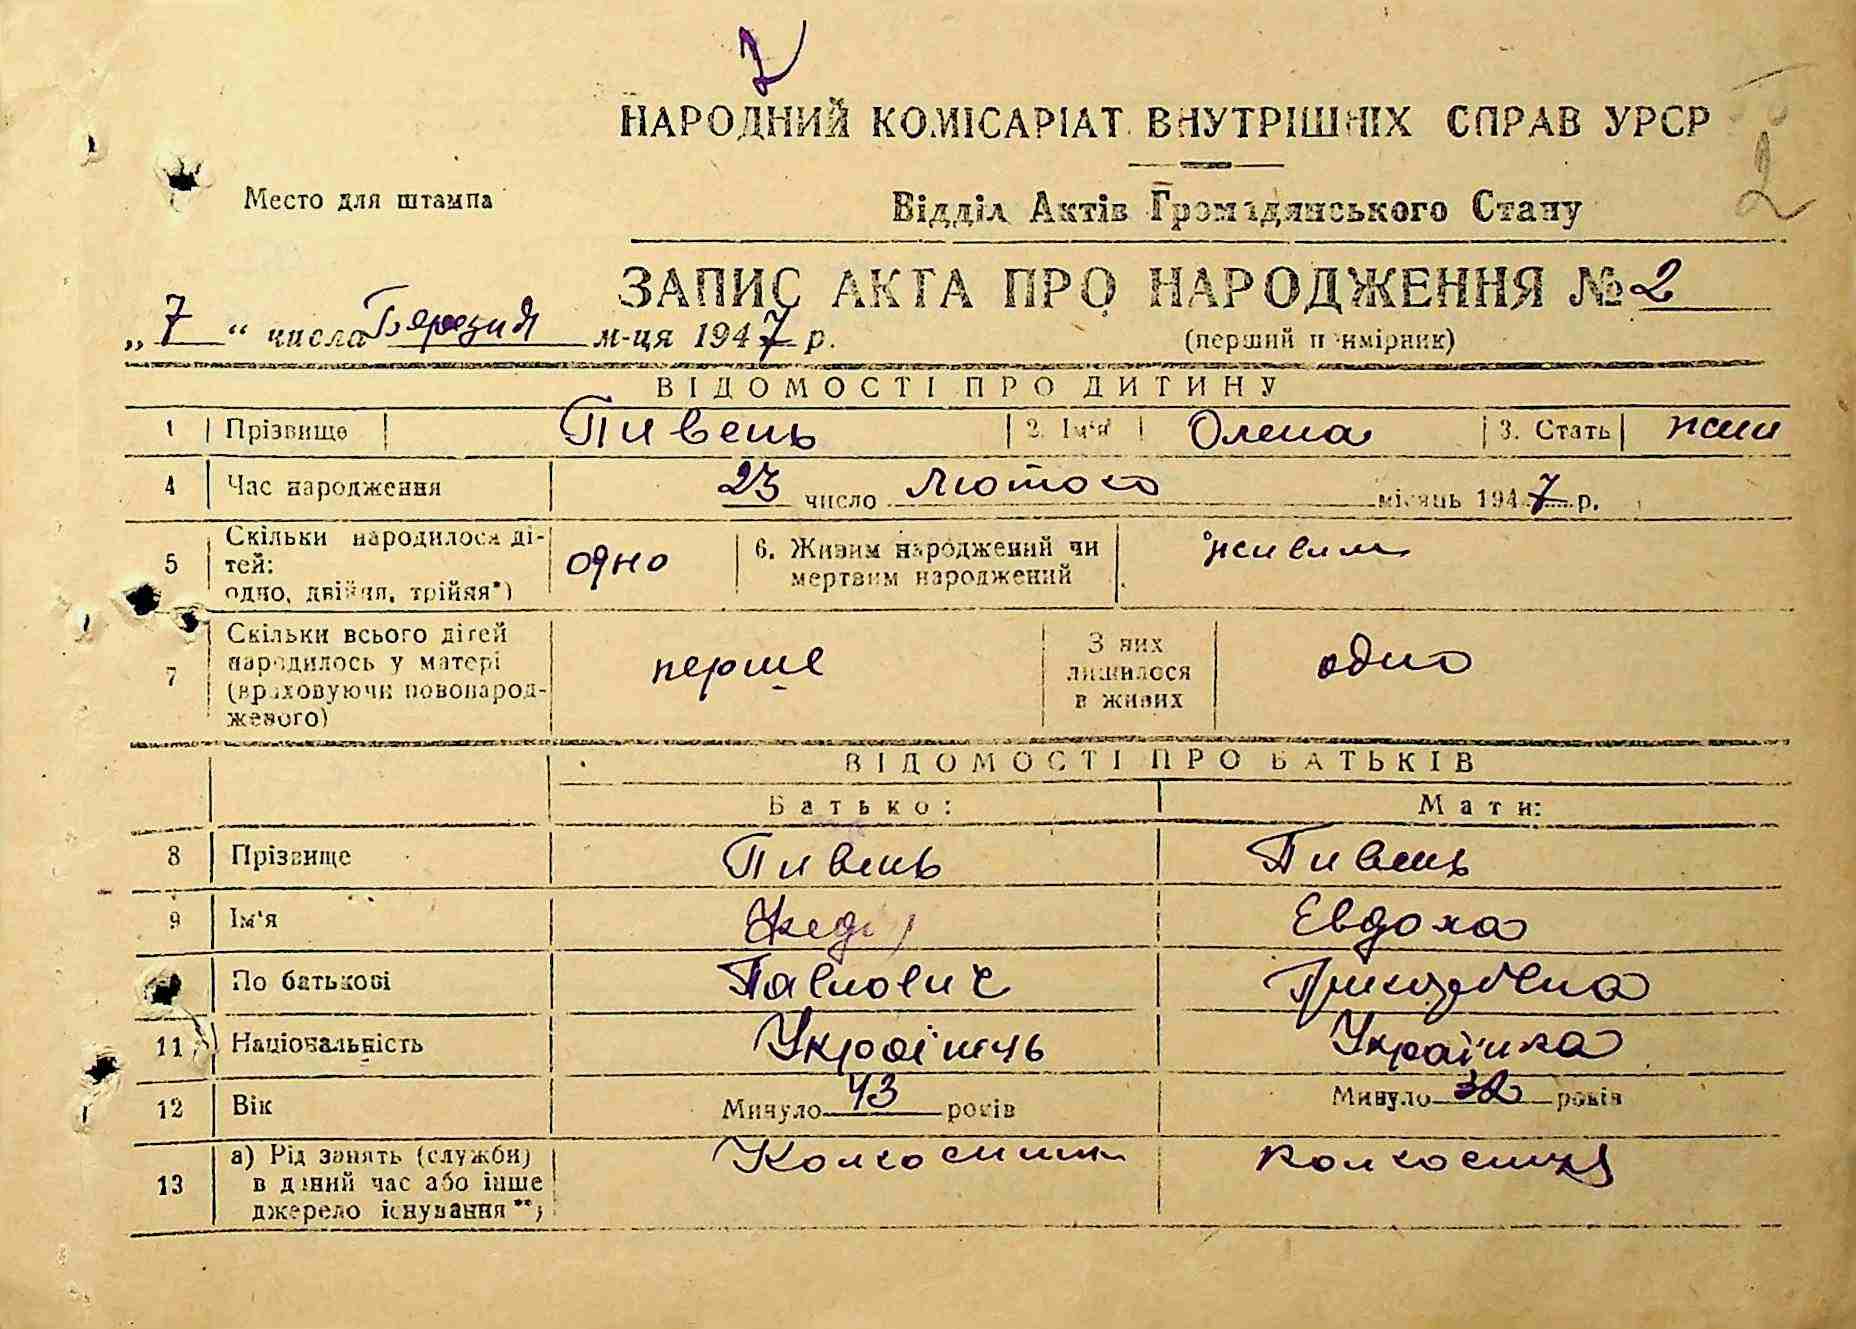 2
НАРОДНИЙ КОМІСАРІАТ ВНУТРІШНІХ СПРАВ УРСР
2
Место для штампа
Відділ Актів Громадянського Стану
ЗАПИС АКТА ПРО НАРОДЖЕННЯ № 2
„ 7 “ числа Березня м-ця 1947 р.
(перший примірник)
ВІДОМОСТІ ПРО ДИТИНУ
1 Прізвище Пивень 2. Ім'я Олена 3. Стать жин
4 Час народження 23 число Лютого місяць 1947 р.
5 Скільки народилося дітей: одно, двійня, трійня*) одно 6. Живим народжений чи мертвим народжений живим
7 Скільки всього дітей народилось у матері (враховуючи новонародженого) перше З них лишилося в живих одно
ВІДОМОСТІ ПРО БАТЬКІВ
Батько: Мати:
8 Прізвище Пивень Пивень
9 Ім'я Евдоха
По батькові Павлович
11 Національність Українець Українка
12 Вік Минуло 43 років Минуло 32 років
13 а) Рід занять (служби) в даний час або інше джерело існування**) Колхосник колхосниця